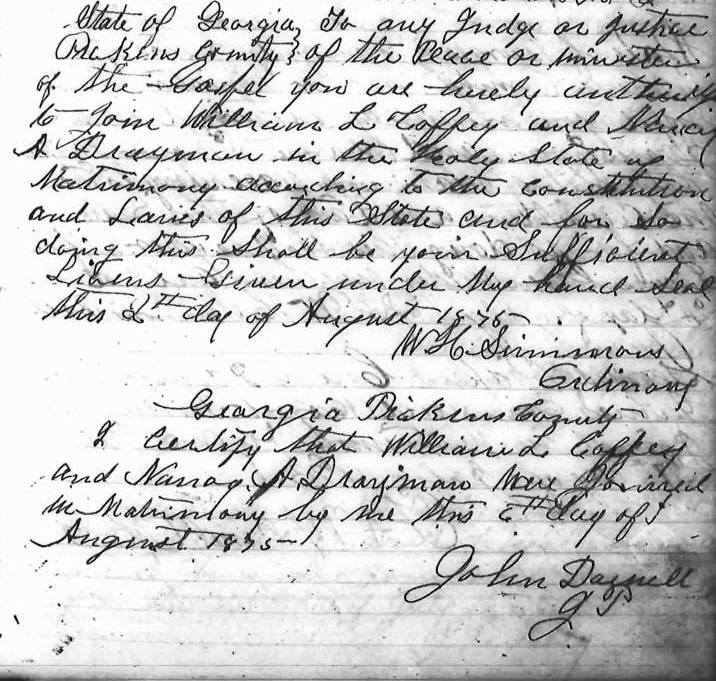 State of Georgia, To any Judge or Justice
Pickens County } of the Peace or minister
of the Gospel you are hereby authorize
to Join William L Coffey and Nancy
A Drayman in the Holy State of
Matrimony according to the Constitution
and Laws of this State and for So
doing this Shall be your Sufficient
Licens Given under My hand Seal
this 2th day of August 1875
W H Simmons
Ordinary
Georgia Pickens County
I Certify that William L Coffey
and Nancy A Drayman were Joined
in Matrimony by me this day of
August 1875
John Darnell
J P